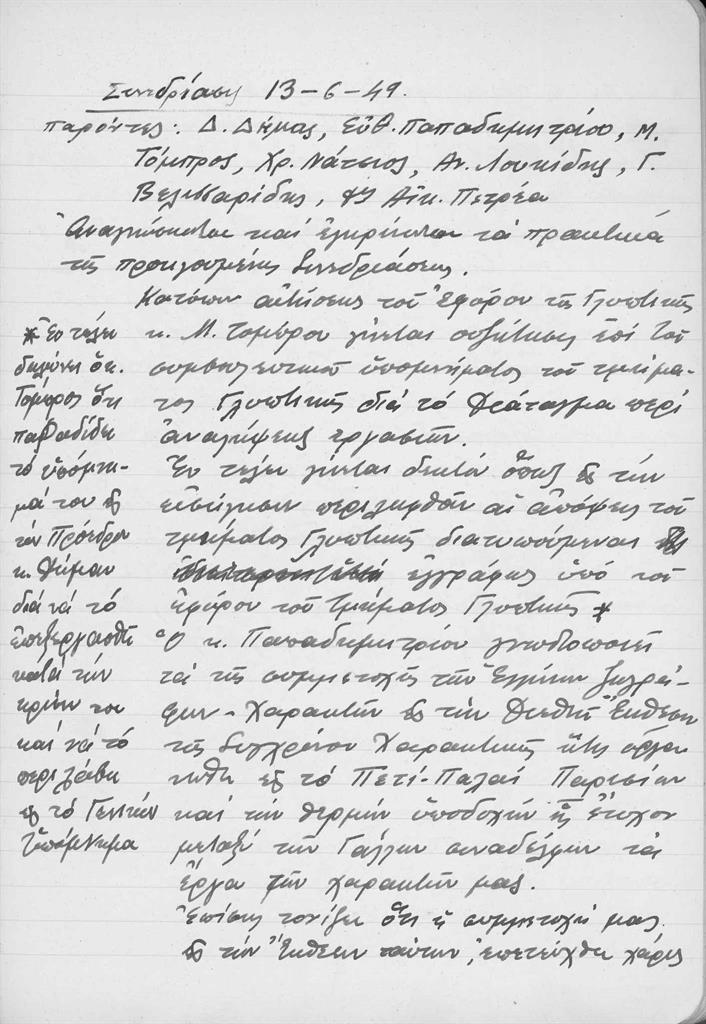 Συνεδρίασις 13-6-49.
παρόντες: Δ. Δήμας, Εὐθ. Παπαδημητρίου, Μ.
Τόμπρος, Χρ. Νάτσιος, Αν. Λουκίδης, Γ.
Βελισσαρίδης, Αἰκ. Πετρέα
Ἀναγιγνώσκονται καὶ ἐγκρίνονται τὰ πρακτικὰ
τῆς προηγουμένης συνεδριάσεως.
Κατόπιν αἰτήσεως τοῦ Ἐφόρου τῆς Γλυπτικῆς
κ. Μ. Τόμπρου γίνεται συζήτησις ἐπὶ τοῦ
συμβουλευτικοῦ ὑπομνήματος τοῦ τμήμα-
τος Γλυπτικῆς διὰ τὸ Διάταγμα περὶ
ἀναλήψεως ἐργασιῶν.
Ἐν τέλει γίνεται δεκτὸν ὅπως εἰς τὴν
εἰσήγησιν περιληφθοῦν αἱ ἀπόψεις τοῦ
τμήματος Γλυπτικῆς διατυπούμεναι
ἐγγράφως ὑπὸ τοῦ
ἐφόρου τοῦ τμήματος Γλυπτικῆς *
Ὁ κ. Παπαδημητρίου γνωστοποιεῖ
τὰ τῆς συμμετοχῆς τῶν Ἑλλήνων ζωγρά-
φων-Χαρακτῶν εἰς τὴν Διεθνῆ Ἔκθεσιν
τῆς Συγχρόνου Χαρακτικῆς ἥτις ὀργα-
νώθη εἰς τὸ Πετί-Παλαί Παρισίων
καὶ τὴν θερμὴν ὑποδοχὴν ἧς ἔτυχον
μεταξὺ τῶν Γάλλων συναδέλφων τὰ
ἔργα τῶν χαρακτῶν μας.
Ἐπίσης τονίζει ὅτι ἡ συμμετοχή μας
εἰς τὴν Ἔκθεσιν ταύτην, ἐπετεύχθη χάρις
* Ἐν τέλει
δηλώνει ὁ κ.
Τόμπρος ὅτι
παραδίδει
τὸ ὑπόμνη-
μά του εἰς
τὸν Πρόεδρον
κ. Δήμαν
διὰ νὰ τὸ
ἐπεξεργασθῆ
κατὰ τὴν
κρίσιν του
καὶ νὰ τὸ
περιλάβη
εἰς τὸ Γενικὸν
Ὑπόμνημα